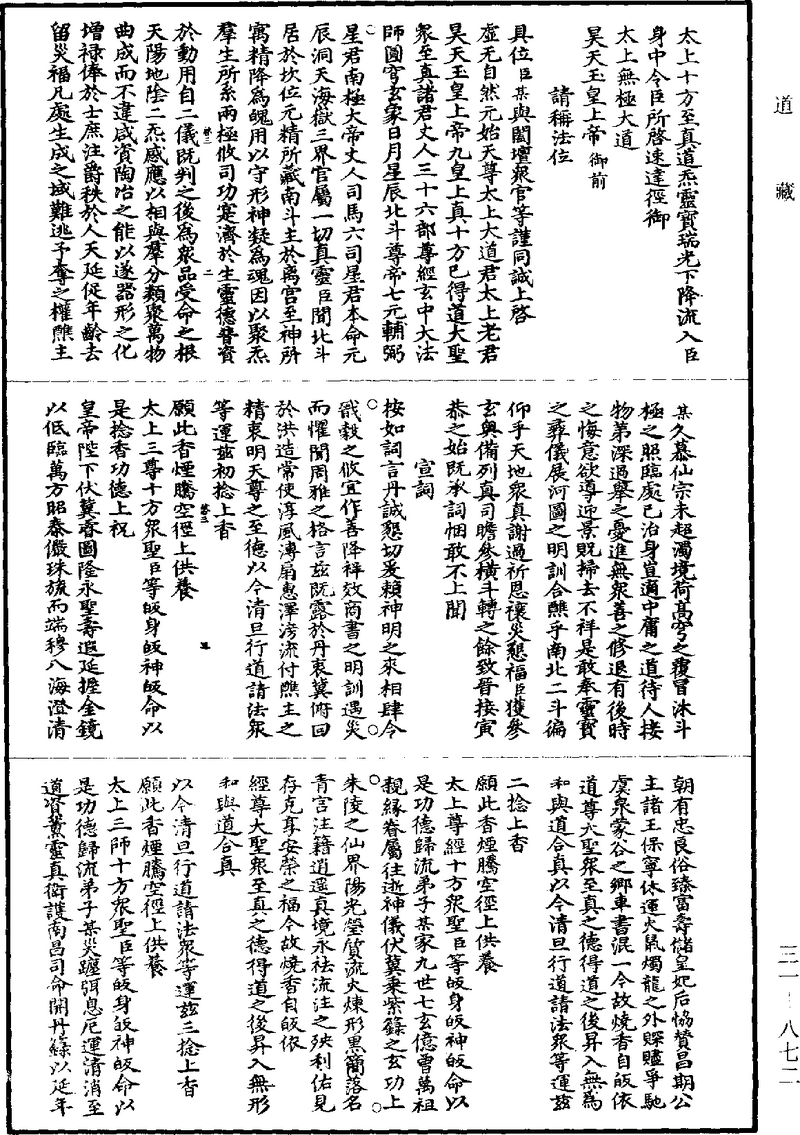 道藏
太上十方至真道炁靈寶瑞光下降流入臣
身中令臣所啓速達徑御
太上無極大道
昊天玉皇上帝 御前
請稱法位
具位臣某與闔壇衆官等謹同誠上啓
虛无自然元始天尊太上大道君太上老君
昊天玉皇上帝九皇上真十方已得道大聖
衆至真諸君丈人三十六部尊經玄中大法
師圓穹玄象日月星辰北斗尊帝七元輔弼
星君南極大帝丈人司馬六司星君本命元
辰洞天海嶽三界官屬一切真靈臣聞北斗
居於坎位元精所藏南斗主於离宫至神所
寓精降為魄用以守形神凝為魂因以聚炁
羣生所系兩極攸司功寔濟於生靈德普資
於動用自二儀既判之後為衆品受命之根
天陽地陰二炁感應以相與羣分類聚萬物
曲成而不違咸資陶冶之能以遂器形之化
增禄俸於士庶注爵秩於人天延促年齡去
留災福凡處生成之域難逃予奪之權醮主
某久慕仙宗未超濁境荷高穹之覆冒沐斗
極之照臨處己治身豈適中庸之道待人接
物第深過舉之憂進無衆善之修退有後時
之悔意欲導迎景貺掃去不祥是敢奉靈寶
之彝儀展河圖之明訓合醮乎南北二斗徧
仰乎天地衆真謝過祈恩禳災懇福臣獲參
玄輿備列真司瞻參橫斗轉之餘致晉接寅
恭之始既承詞悃敢不上聞
宣詞
按如詞言丹誠懇切爰賴神明之來相肆令
戩穀之攸宜作善降祥效商書之明訓遇災
而懼聞周雅之格言茲既露於丹衷冀俯回
於洪造常使淳風溥扇惠澤滂流付醮主之
精衷明天尊之至德以今清旦行道請法衆
等運茲初捻上香
願此香煙騰空徑上供養
太上三尊十方衆聖臣等皈身皈神皈命以
是捻香功德上祝
皇帝陛下伏冀睿圖隆永聖壽遐延握金鏡
以低臨萬方昭泰儼珠旒而端穆八海澄清
朝有忠良俗臻富壽儲皇妃后恊賛昌期公
主諸王保寧休運火鼠燭龍之外賝贐爭馳
虞泉蒙谷之鄉車書混一今故燒香自皈依
道尊大聖衆至真之德得道之後昇入無為
和與道合真以今清旦行道請法衆等運茲
二捻上香
願此香煙騰空徑上供養
太上尊經十方衆聖臣等皈身皈神皈命以
是功德歸流弟子某家九世七玄億曾萬祖
親緣眷屬往逝神儀伏冀乘紫籙之玄功上
朱陵之仙界陽光瑩質流火煉形黑簡落名
青宫注籍逍遥真境永祛流注之殃利佑見
存克享安榮之福今故燒香自皈依
經尊大聖衆至真之德得道之後昇入無形
和與道合真
以今清旦行道請法衆等運茲三捻上香
願此香煙騰空徑上供養
太上三師十方衆聖臣等皈身皈神皈命以
是功德歸流弟子某災躔弭息厄運清消至
道資薰靈真衛護南昌司命開丹籙以延年
三一-八七二